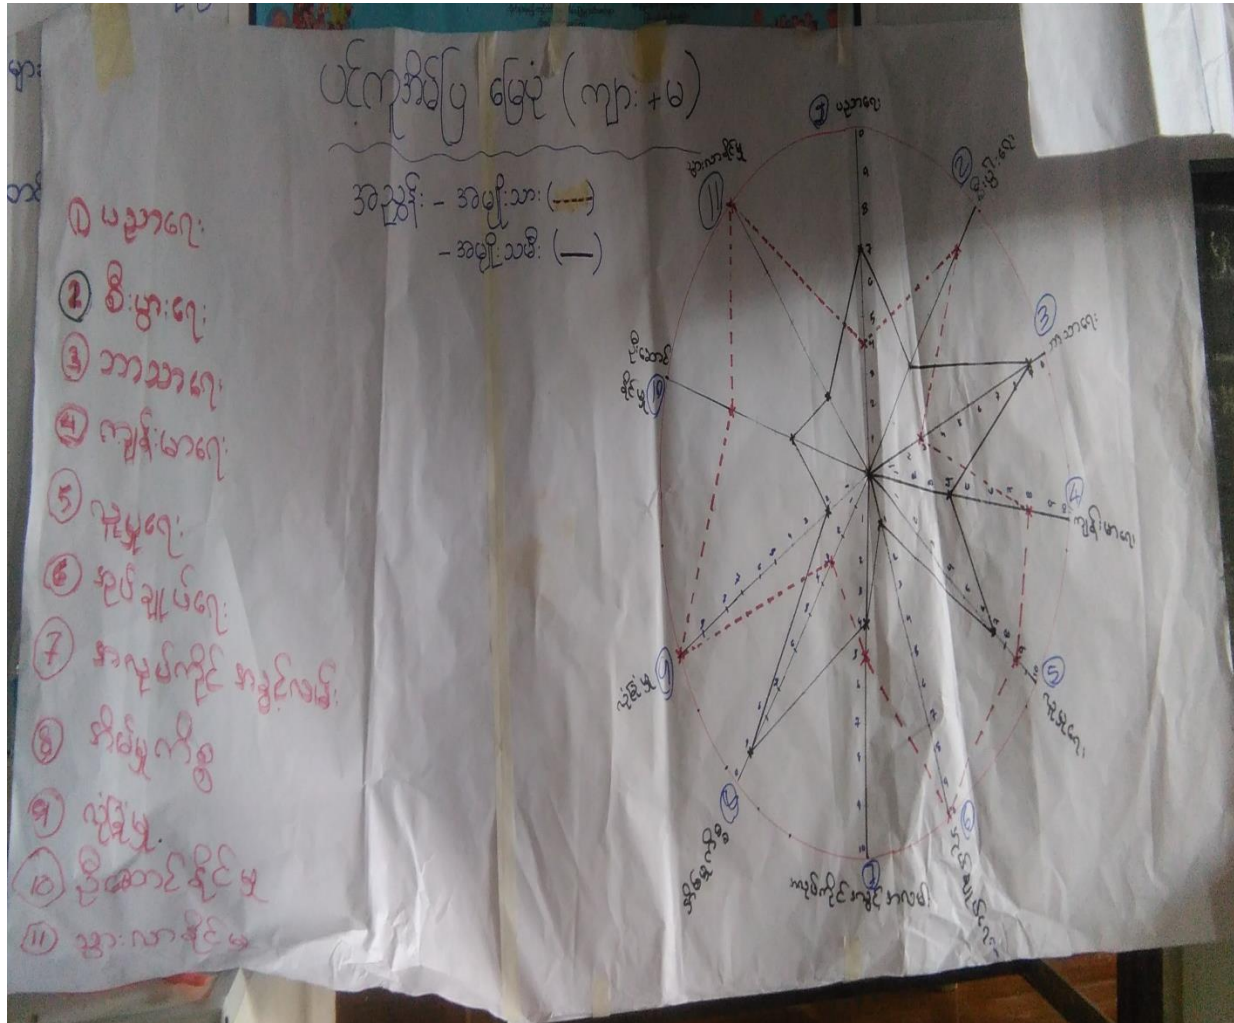 ပင့်ကူအိမ်ပြ မြေပုံ (ကျား + မ)
အညွှန်း - အမျိုးသား (-----)
- အမျိုးသမီး (—)
① ပညာရေး
② စီးပွားရေး
③ ဘာသာရေး
④ ကျန်းမာရေး
⑤ လူမှုရေး
⑥ အုပ်ချုပ်ရေး
⑦ အလုပ်ကိုင် အခွင့်လမ်း
⑧ အိမ်မှုကိစ္စ
⑨ လုံခြုံမှု
⑩ ဦးဆောင်နိုင်မှု
⑪ သွားလာနိုင်မှု
① ပညာရေး
② စီးပွားရေး
③ ဘာသာရေး
④ ကျန်းမာရေး
⑤ လူမှုရေး
⑥ အုပ်ချုပ်ရေး
⑦
အလုပ်ကိုင်အခွင့်အလမ်း
⑧
အိမ်မှုကိစ္စ
⑨
လုံခြုံမှု
ဦးဆောင်
နိုင်မှု ⑩
သွားလာနိုင်မှု
⑪